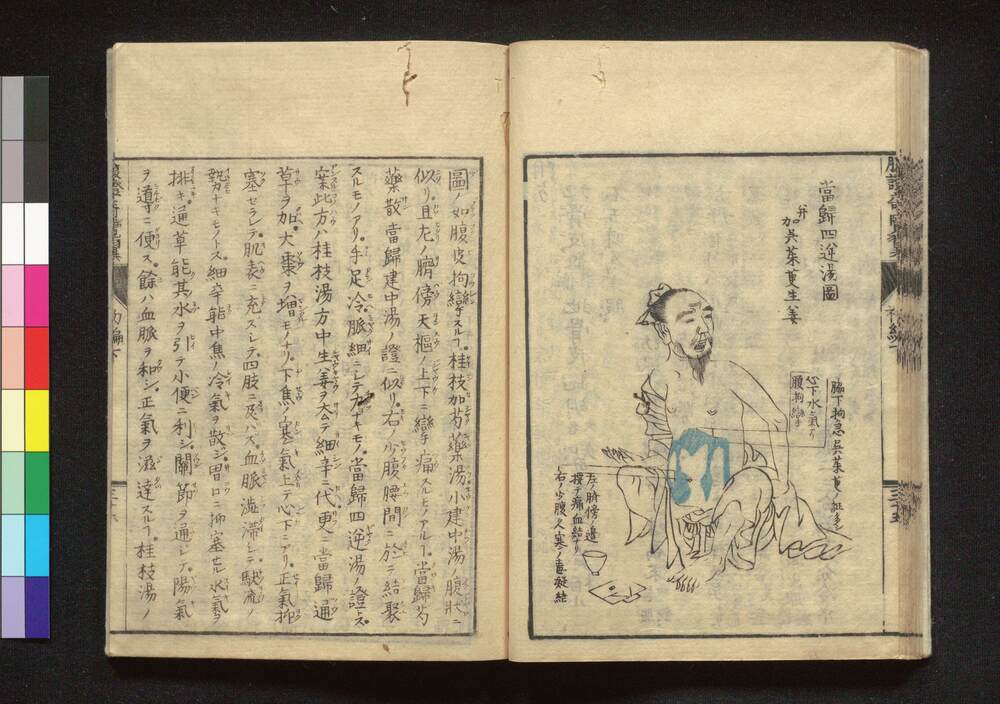 當歸四逆湯圖
并
加呉茱萸生姜
脇下拘急呉茱萸ノ証多シ
心下水氣アリ
腹拘攣
左ノ臍傍ノ邉
按テ痛血結ナリ
右ノ少腹久寒ノ毒凝結
圖ノ如腹皮拘攣スル丁桂枝加芍藥湯小建中湯ノ腹狀ニ
似リ且左ノ臍傍天樞ノ上下ニ攣痛スルモノアル丁當歸芍
藥散當歸建中湯ノ證ニ似リ右ノ少腹腰間ニ於テ結聚
スルモノアリ手足冷脈細ニシテ力ナキモノ當歸四逆湯ノ證トス
案此方ハ桂枝湯方中生姜ヲ去テ細辛ニ代更ニ當歸通
草ヲ加大棗ヲ増モノナリ下焦ノ寒氣上テ心下ニアリ正氣抑
塞セラレテ肌表ニ充スレテ四肢ニ及ハス血脈澁滞シテ駛流ノ
勢ナキモノトス細辛能中焦ノ冷氣ヲ散シ胃口ニ抑塞セル水氣ヲ
排キ通草能其水ヲ引テ小便ニ利シ關節ヲ通シテ陽氣
ヲ導ニ便ス餘ハ血脈ヲ和シ正氣ヲ滋達スル丁桂枝湯ノ